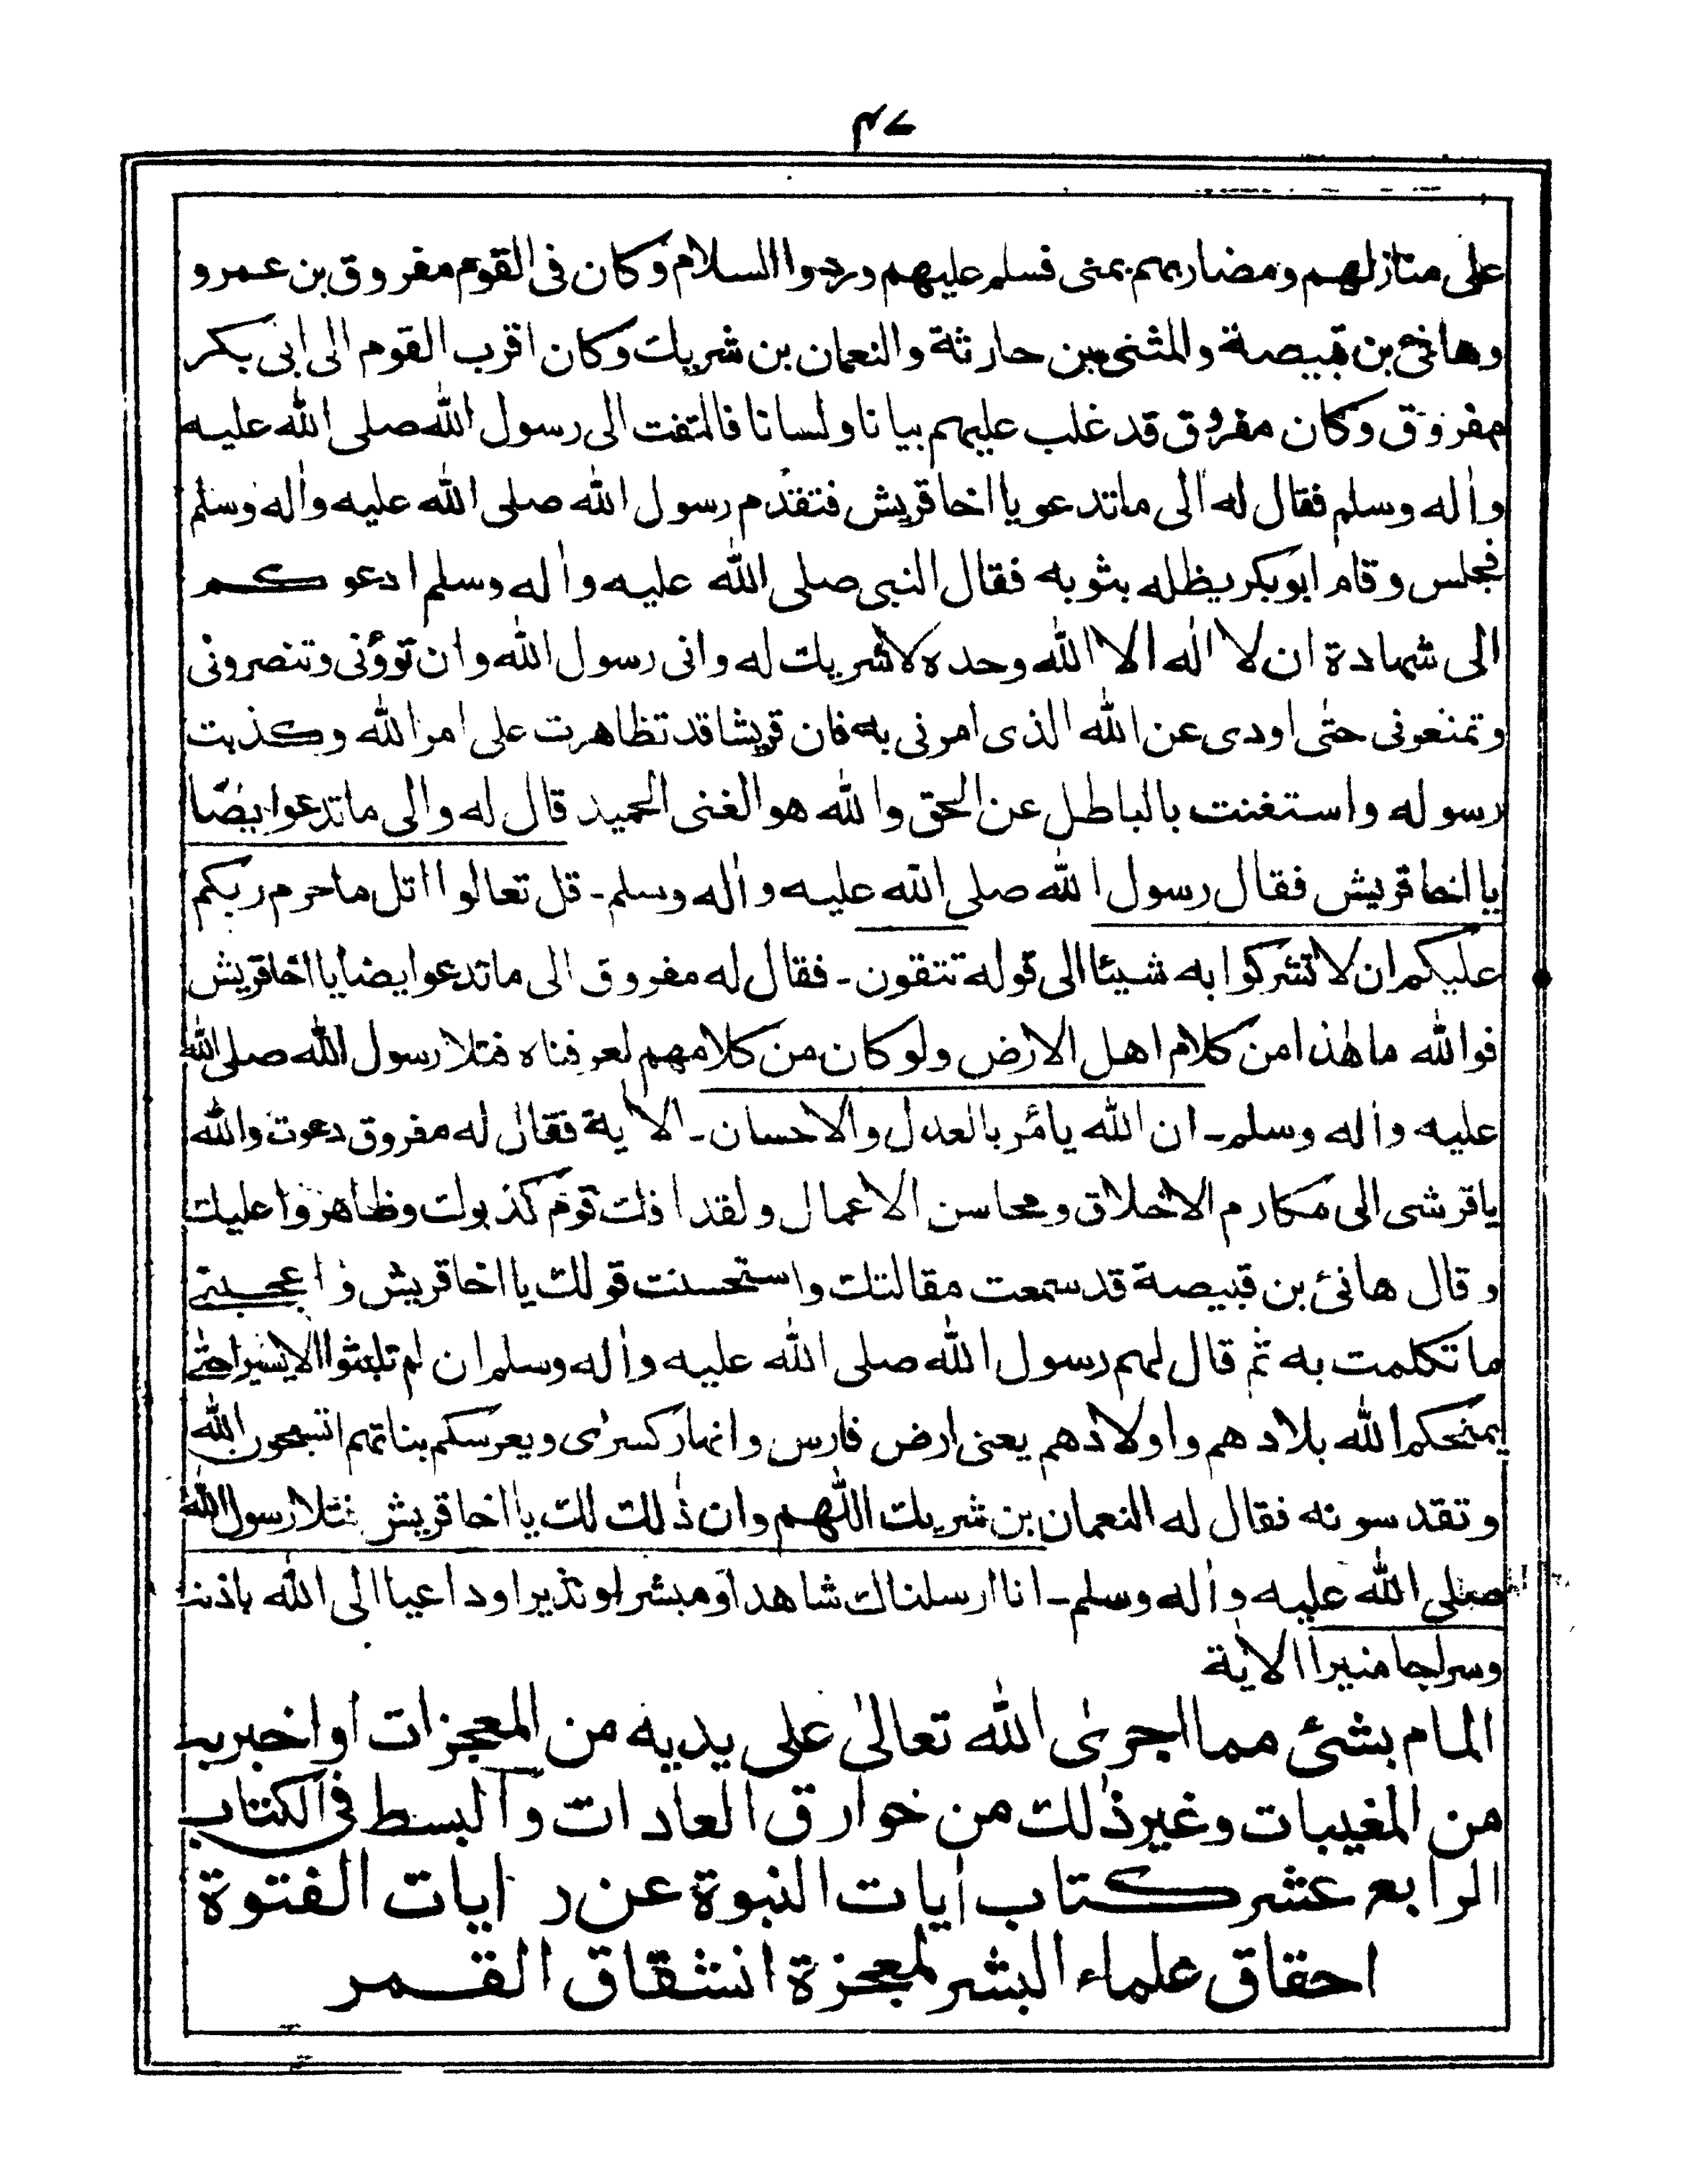 ۴۷
على منازلهم ومضاربهم بمنى فسلم عليهم وردوا السلام وكان فى القوم مفروق بن عمرو
وهانئ بن قبيصة والمثنى بن حارثة والنعمان بن شريك وكان اقرب القوم الى ابى بكر
مفروق وكان مفروق قد غلب عليهم بيانا ولسانا فالتفت الى رسول الله صلى الله عليه
واٰله وسلم فقال له الى ماتدعو يا اخا قريش فتقدم رسول الله صلى الله عليه واٰله وسلم
فجلس وقام ابوبكر يظله بثوبه فقال النبى صلى الله عليه واٰله وسلم ادعوكم
الى شهادة ان لا اله الا الله وحده لاشريك له وانى رسول الله وان تؤونى وتنصرونى
وتمنعونى حتى اودى عن الله الذى امرنى به فان قريشا قد تظاهرت على امر الله وكذبت
رسوله واستغنت بالباطل عن الحق والله هو الغنى الحميد قال له والى ماتدعوا يضًا
يا اخا قريش فقال رسول الله صلى الله عليه واٰله وسلم۔ قل تعالوا اتل ماحرم ربكم
عليكم ان لا تشركوا به شيئا الى قوله تتقون۔ فقال له مفروق الى ماتدعوا يضا يا اخا قريش
فوالله ماهٰذا من كلام اهل الارض ولو كان من كلامهم لعرفناه فتلا رسول الله صلى الله
عليه واٰله وسلم۔ ان الله يأمر بالعدل والاحسان۔ الاية فقال له مفروق دعوت والله
ياقرشى الى مكارم الاخلاق ومحاسن الاعمال ولقد افك قوم كذبوك وظاهروا عليك
وقال هانئ بن قبيصة قد سمعت مقالتك واستحسنت قولك يا اخا قريش واعجبنى
ماتكلمت به ثم قال لهم رسول الله صلى الله عليه واٰله وسلم ان لم تلبثوا الا يسيرا حتى
يمنحكم الله بلادهم واولادهم يعنى ارض فارس وانهار كسرٰى ويعرسكم بناتهم اتسبحون الله
وتقدسونه فقال له النعمان بن شريك اللهم وان ذٰلك لك يا اخا قريش فتلا رسول الله
صلى الله عليه واٰله وسلم۔ انا ارسلناك شاهدا ومبشرا ونذيرا وداعيا الى الله باذنه
وسراجا منيرا الاٰية
المام بشئ مما اجرىٰ الله تعالىٰ على يديه من المعجزات او اخبر به
من المغيبات وغير ذٰلك من خوارق العادات والبسط فى الكتاب
الرابع عشر كتاب اٰيات النبوة عن رايات الفتوة
احقاق علماء البشر لمعجزة انشقاق القمر